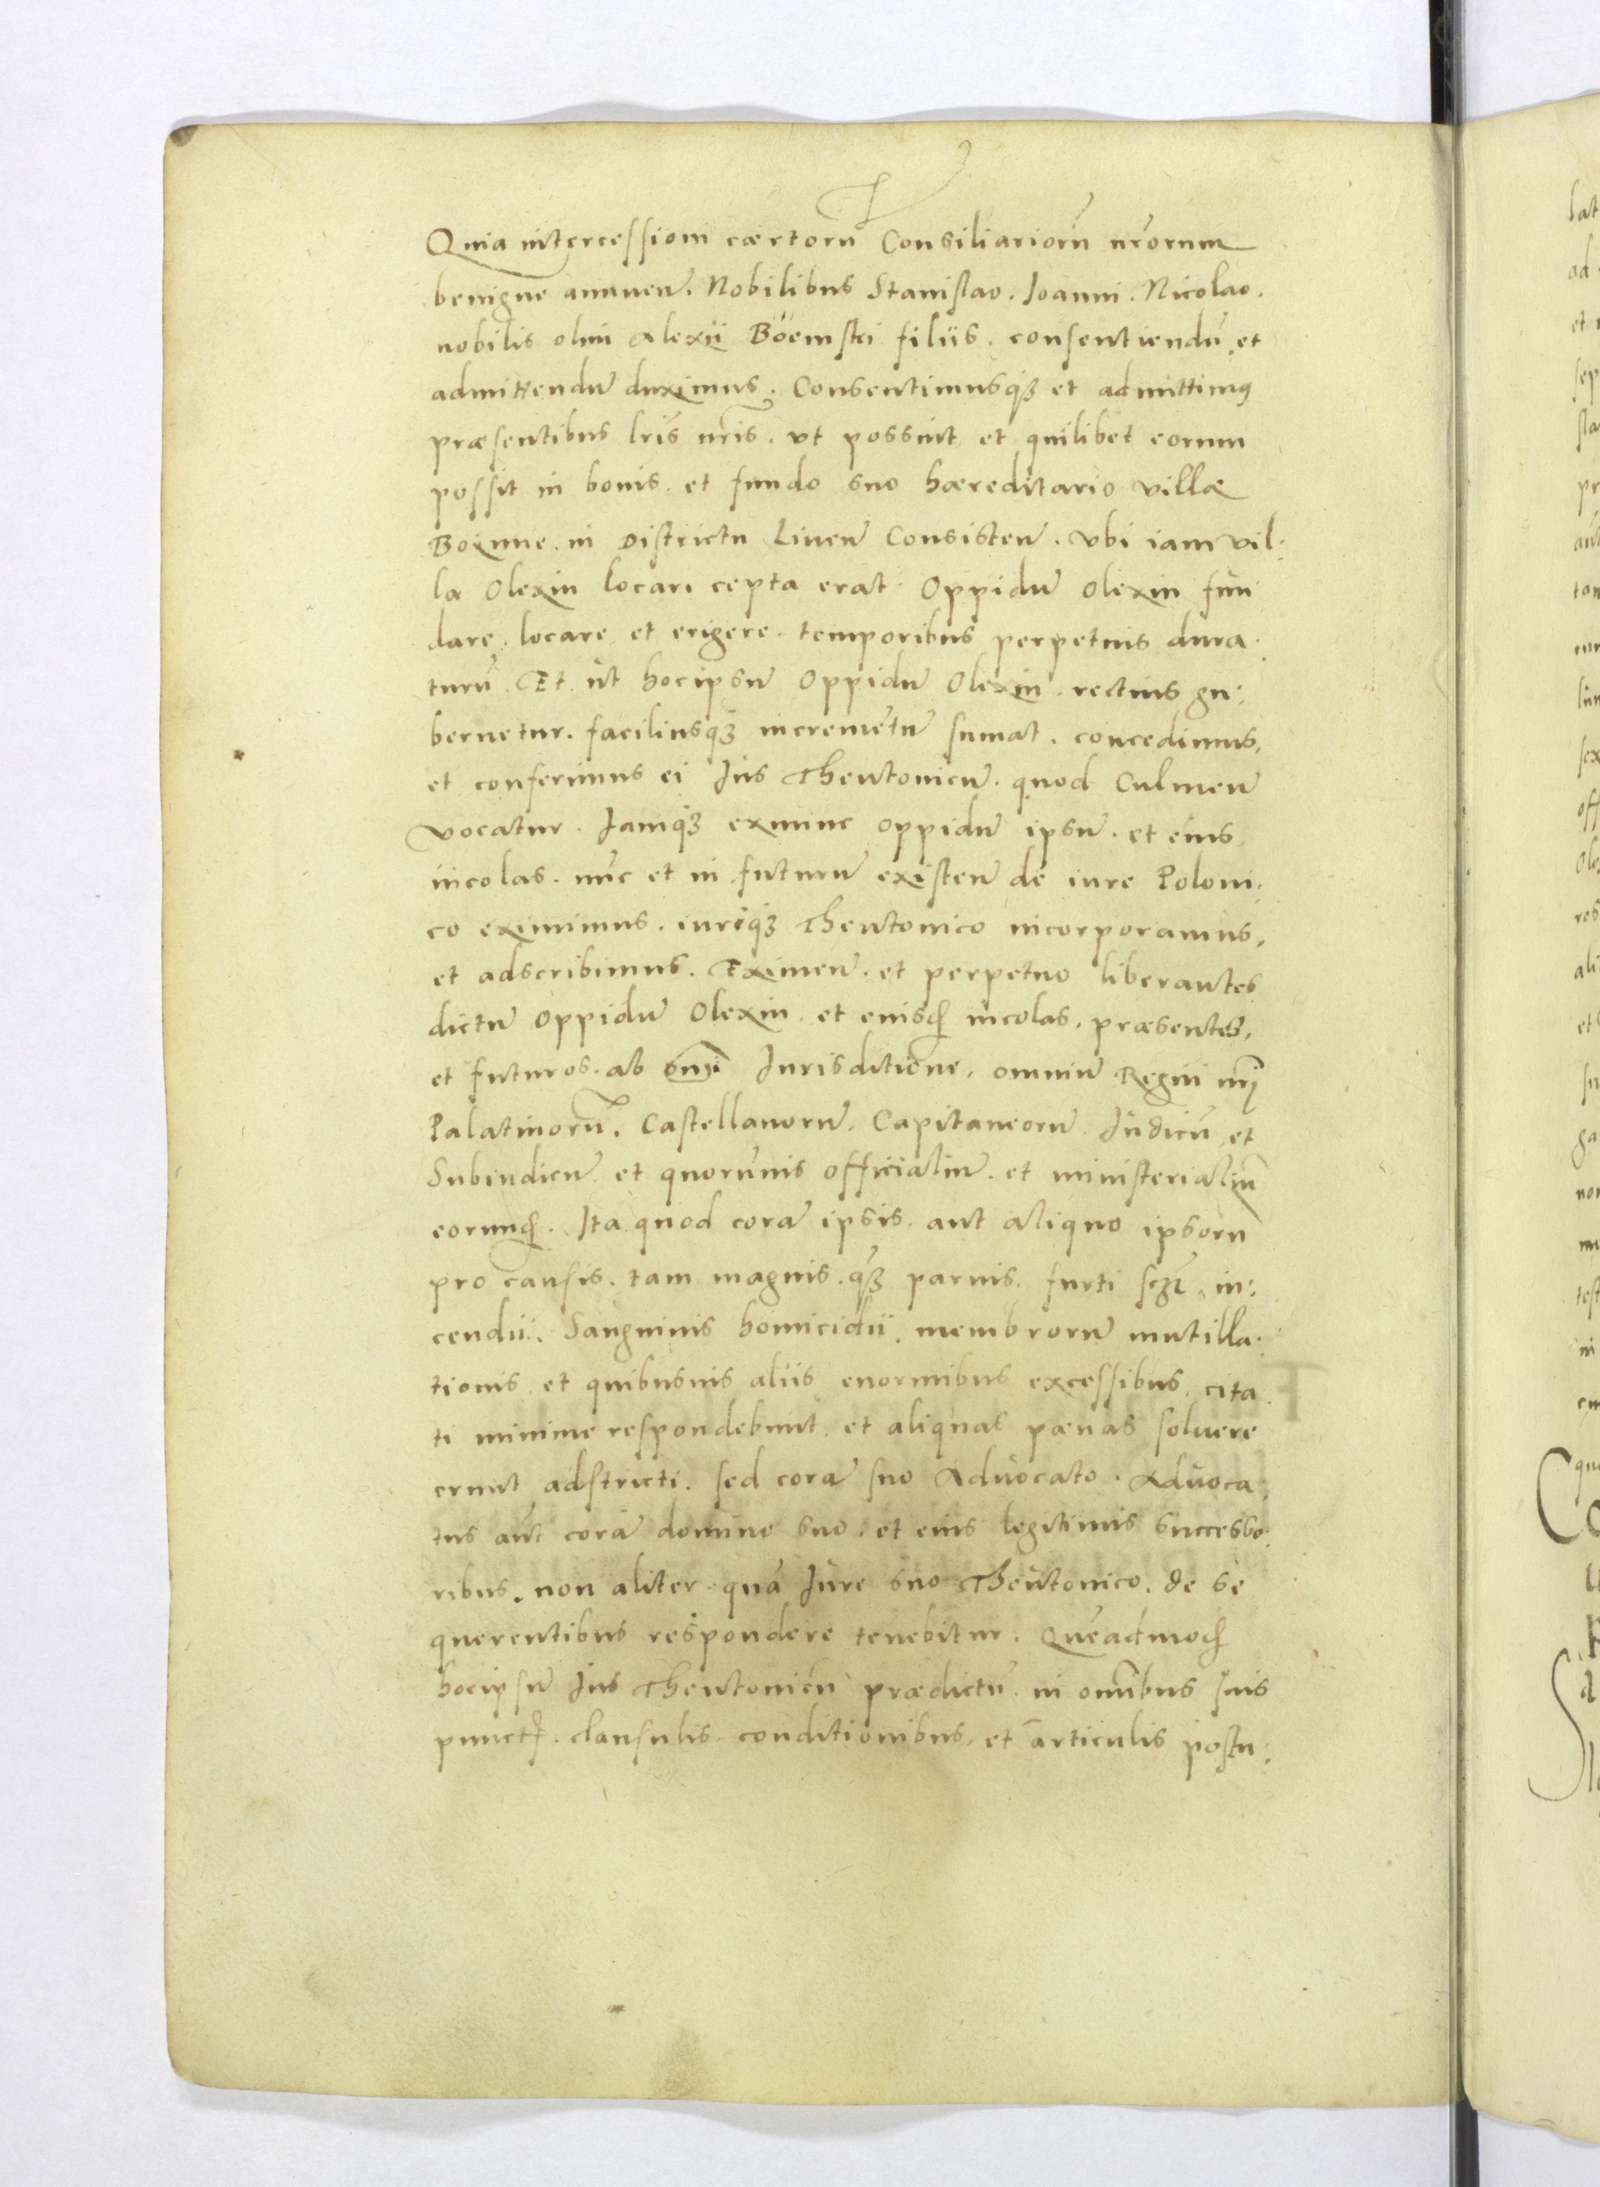 Quia intercessioni cærtorū Consiliariorū nrōrum
benigne annuen̄. Nobilibus Stanislao. Joanni. Nicolao.
nobilis olim Alexii Boemski filiis. consentiendū et
admittendū duximus. Consentimusq₃ et admittimꝰ
præsentibus lris̄ nris̄. ut possint et quilibet eorum
possit in bonis et fundo suo hæreditario villæ
in Districtu Liven̄ Consisten̄. ubi iam vil:
la Olexin locari cepta erat Oppidū Olexin fun
dare. locare et erigere temporibus perpetuis dura
turū. Et ut hocipsū Oppidū Olexin. rectius gu:
bernetur. faciliusq₃ incremētū sumat. concedimus,
et conferimus ei Jus Theutonicū. quod Culmen̄
vocatur. Jamq₃ exnunc oppidū ipsū. et eius
incolas. nūc et in futurū existen̄ de iure Poloni.
co eximimus. iuriq₃ Theutonico incorporamus,
et adscribimus. Eximen̄. et perpetuo liberantes
dictū Oppidū Olexin et eiusꝗ incolas. præsentes,
et futuros. ab omi Jurisditione. omniū Regni nri
Palatinorū. Castellanorū. Capitaneorū Judicū et
Subiudicū et quorūuis officialiū. et ministerialiū
eorundꝫ. Ita quod corā ipsis. aut aliquo ipsorū
pro causis. tam magnis. q₃ paruis. furti in:
cendii. Sanguinis homicidii. membrorū mutilla:
tionis et quibusuis aliis enormibus excessibus cita
ti minime respondebunt. et aliquas pænas soluere
erunt adstricti. sed corā suo Aduocato. Aduoca
tus aūt corā domino suo. et eius legitimis successo:
ribus. non aliter quā Jure suo Theutonico. de se
querentibus respondere tenebitur. Quēadmodꝫ
hocipsū Jus Theutonicū prædictū in omībus suis
punctꝭ. clausulis conditionibus, et articulis postu: